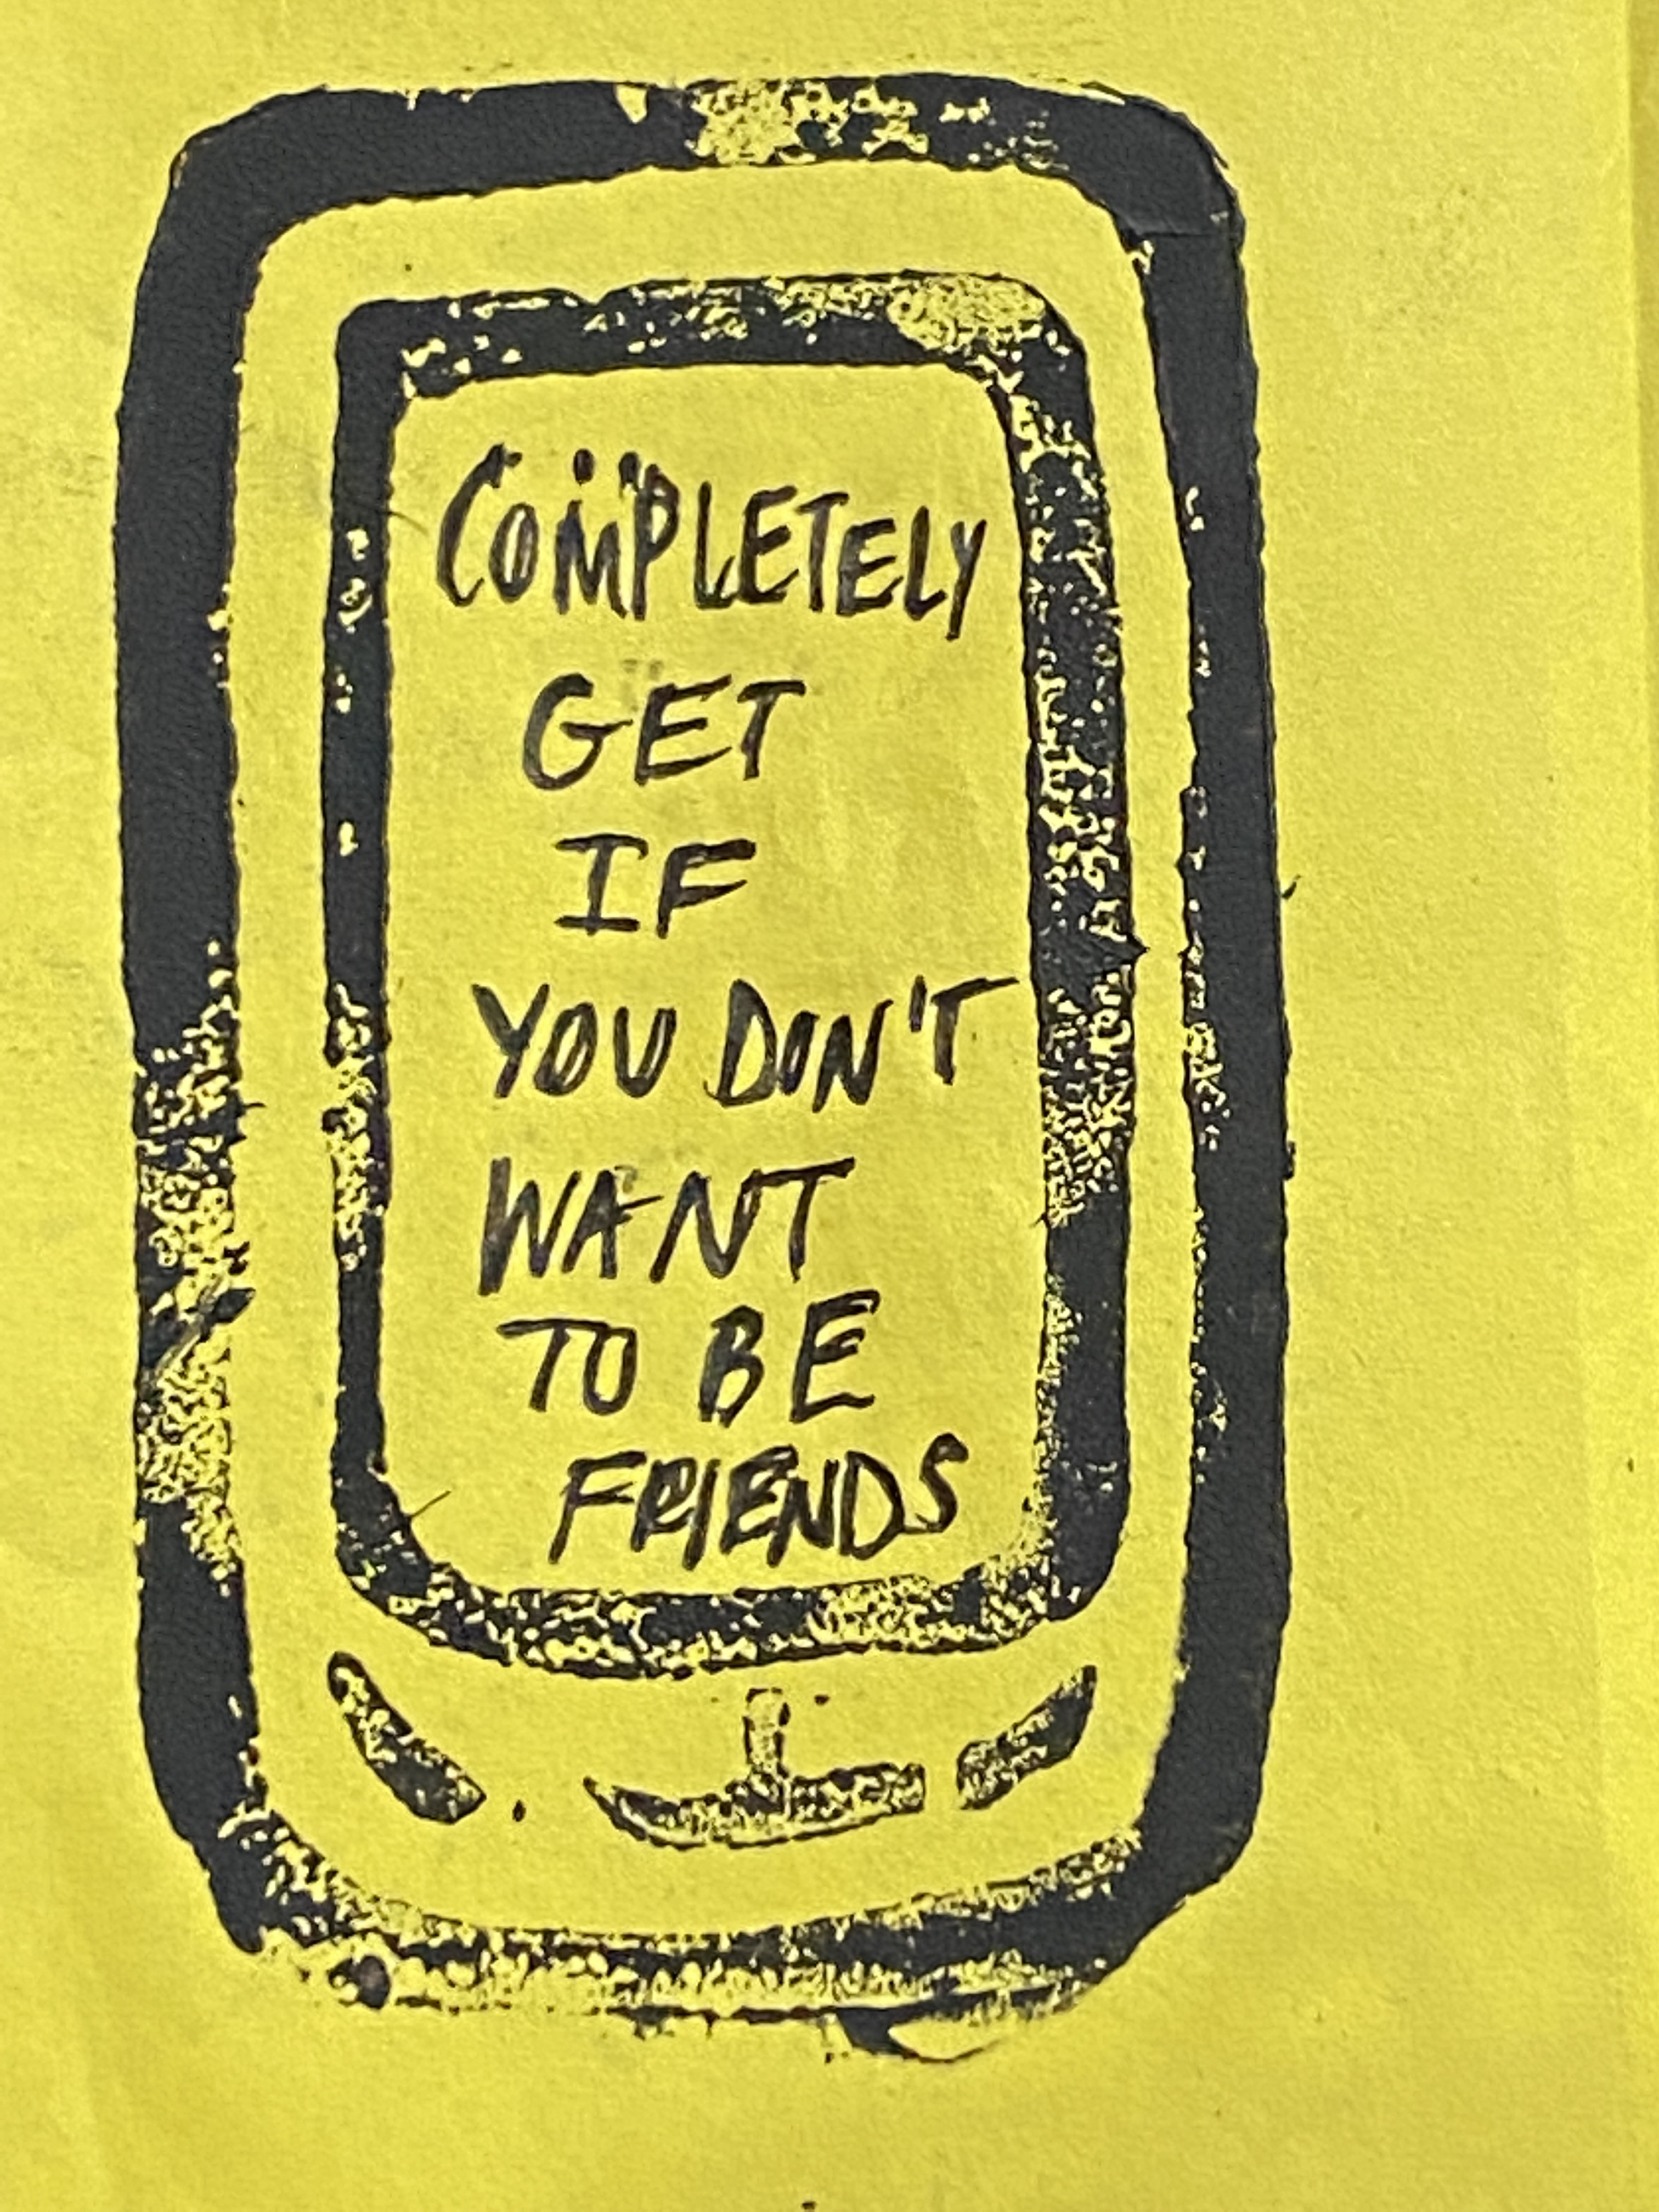 COMPLETELY
GET
IF
YOU DON'T
WANT
TO BE
FRIENDS